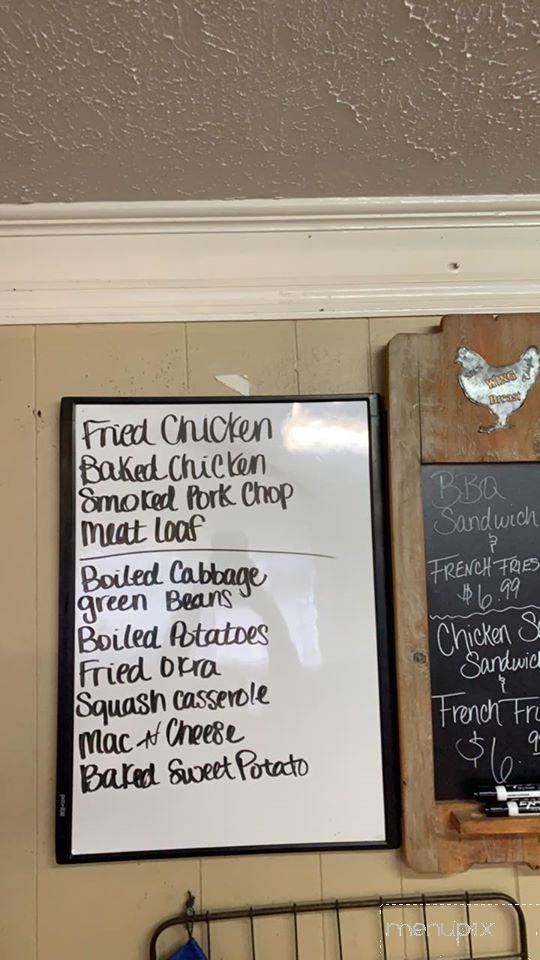 Fried Chicken
Baked Chicken
Smoked Pork Chop
Meat Loaf
Boiled Cabbage
green Beans
Boiled Potatoes
Fried Okra
Squash casserole
Mac N Cheese
Baked Sweet Potato
WING
Breast
BBQ
Sandwich
&
FRENCH FRIES
$6.99
Chicken
Sandwich
&
French
$6.
menupix